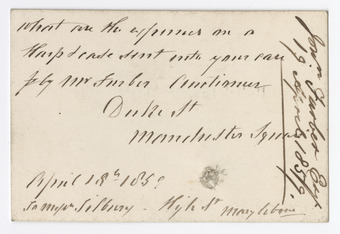 What are the expenses on a
Harp & case sent into your care
by Mr Furber Auctioneer
Duke St
Manchester Square
April 18th 1859
Silbury High St Marylebone
John Furber Esqr
19 April 1859.